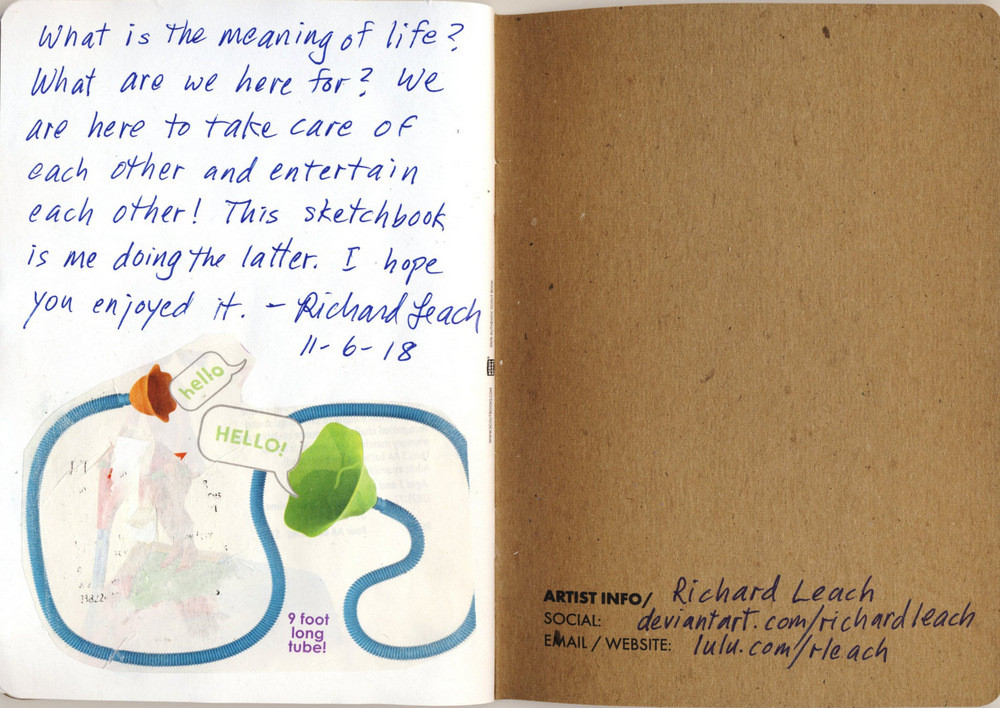 What is the meaning of life?
What are we here for? We
are here to take care of
each other and entertain
each other! This sketchbook
is me doing the latter. I hope
you enjoyed it. - Richard Leach
11-6-18
hello
HELLO!
9 foot
long
tube!
ARTIST INFO/ Richard Leach
SOCIAL: deviantart.com/richardleach
EMAIL / WEBSITE: lulu.com/rleach